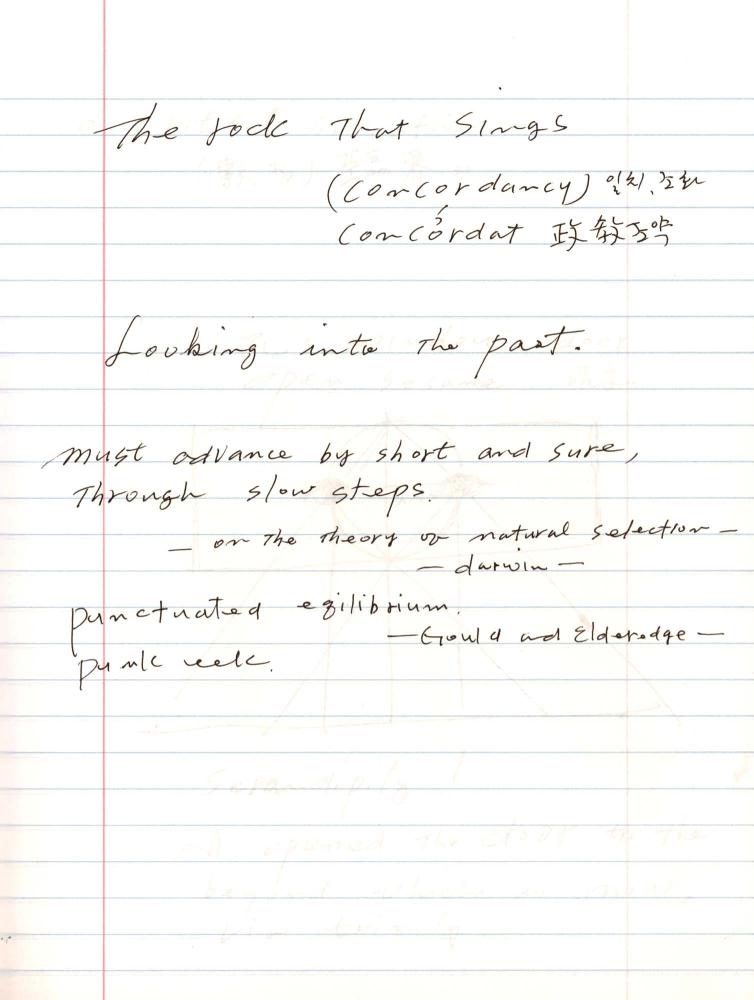 The rock That Sings
(Concordancy) 일치, 조화
?
Concordat 政敎조약
Looking into The past.
must advance by short and sure,
Through slow steps.
— on The Theory of natural selection —
— darwin —
punctuated egilibrium.
— Gould and Elderedge —
punk eek.
Serandipity